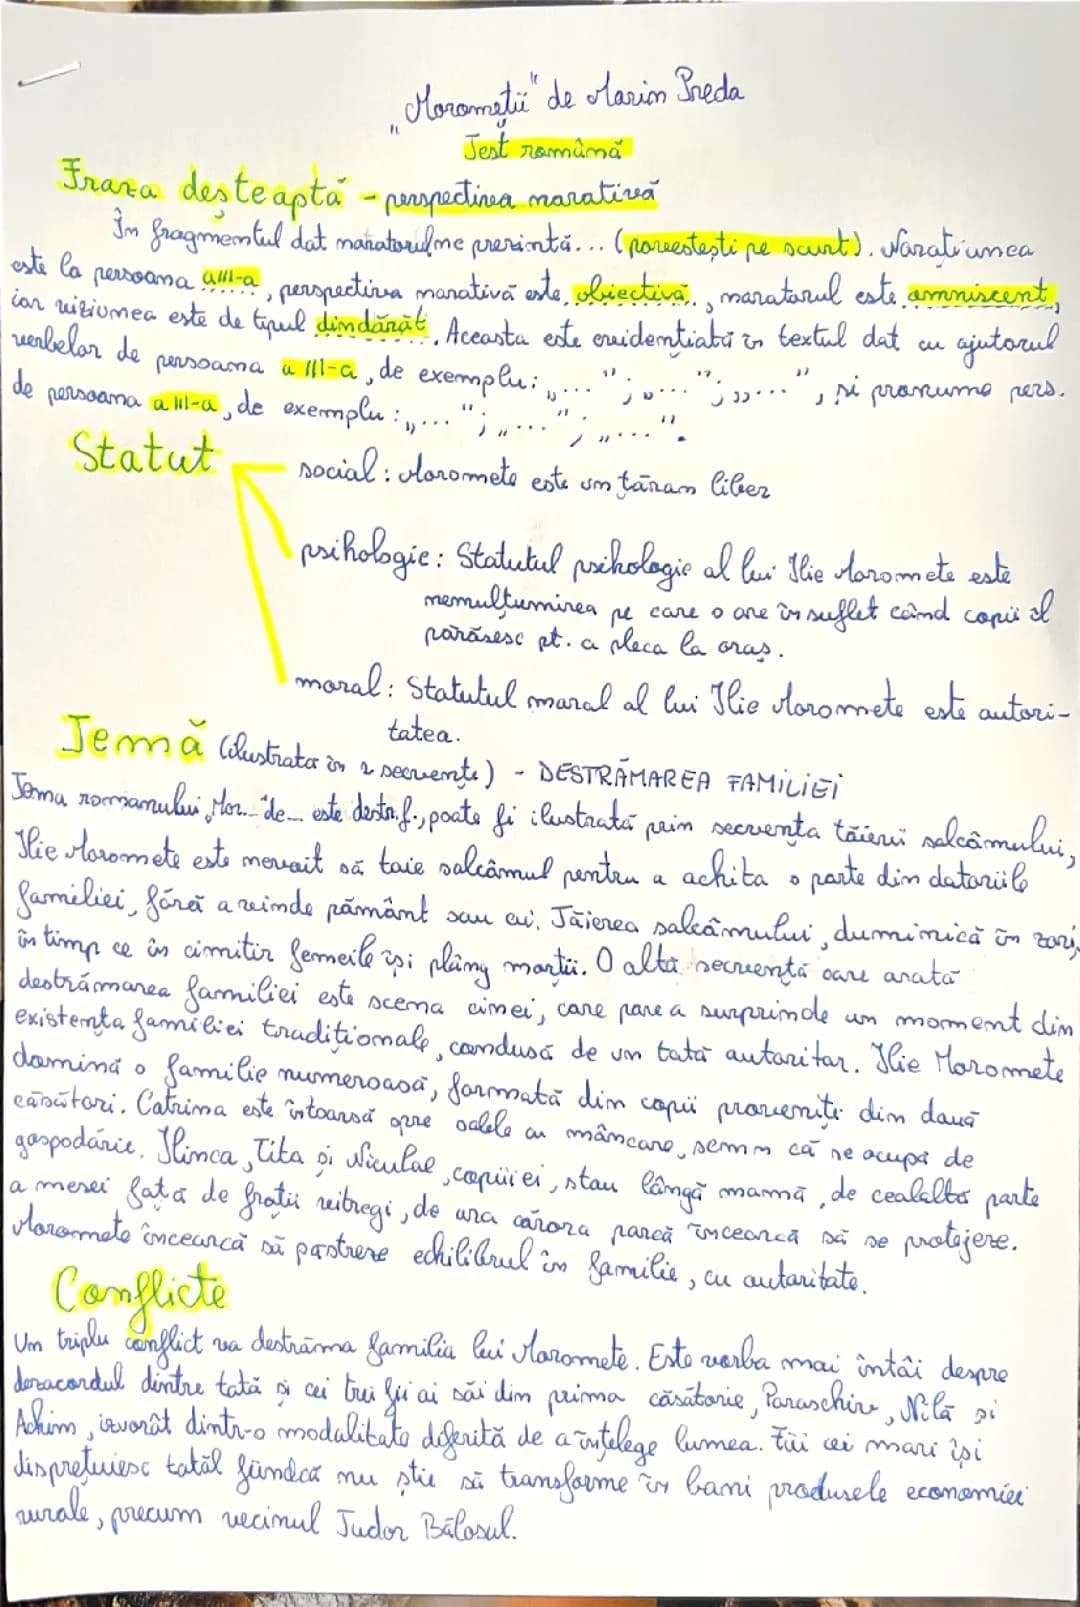 „Moromeții" de Marin Preda
Test română
Fraza deșteaptă - perspectiva narativă
În fragmentul dat naratorul ne prezintă... (povestești pe scurt). Narațiunea
este la persoana a III-a, perspectiva narativă este obiectivă, naratorul este omniscent,
iar viziunea este de tipul dindărăt. Aceasta este evidențiată în textul dat cu ajutorul
verbelor de persoana a III-a, de exemplu: „..."; „..."; „...", și pronume pers.
de persoana a III-a, de exemplu: „..."; „..."; „...".
Statut
social: Moromete este un țăran liber
psihologic: Statutul psihologic al lui Ilie Moromete este
nemulțumirea pe care o are în suflet când copii îl
părăsesc pt. a pleca la oraș.
moral: Statutul moral al lui Ilie Moromete este autori-
tatea.
Temă (ilustrata in 2 secvențe) - DESTRĂMAREA FAMILIEI
Tema romanului „Mor..." de... este destr.f., poate fi ilustrată prin secvența tăierii salcâmului,
Ilie Moromete este nevoit să taie salcâmul pentru a achita o parte din datoriile
familiei, fără a vinde pământ sau oi. Tăierea salcâmului, duminică în zori,
în timp ce în cimitir femeile își plâng morții. O altă secvență care arată
destrămarea familiei este scena cinei, care pare a surprinde un moment din
existența familiei tradiționale, condusă de un tată autoritar. Ilie Moromete
domină o familie numeroasă, formată din copii proveniți din două
căsătorii. Catrina este întoarsă spre oalele cu mâncare, semn că se ocupă de
gospodărie. Ilinca, Tita și Niculae, copiii ei, stau lângă mamă, de cealaltă parte
a mesei față de frații vitregi, de ura cărora parcă încearcă să se protejeze.
Moromete încearcă să păstreze echilibrul în familie, cu autoritate.
Conflicte
Un triplu conflict va destrăma familia lui Moromete. Este vorba mai întâi despre
dezacordul dintre tată și cei trei fii ai săi din prima căsătorie, Paraschiv, Nilă și
Achim, izvorât dintr-o modalitate diferită de a înțelege lumea. Fiii cei mari își
disprețuiesc tatăl fiindcă nu știe să transforme în bani produsele economiei
rurale, precum vecinul Tudor Bălosul.